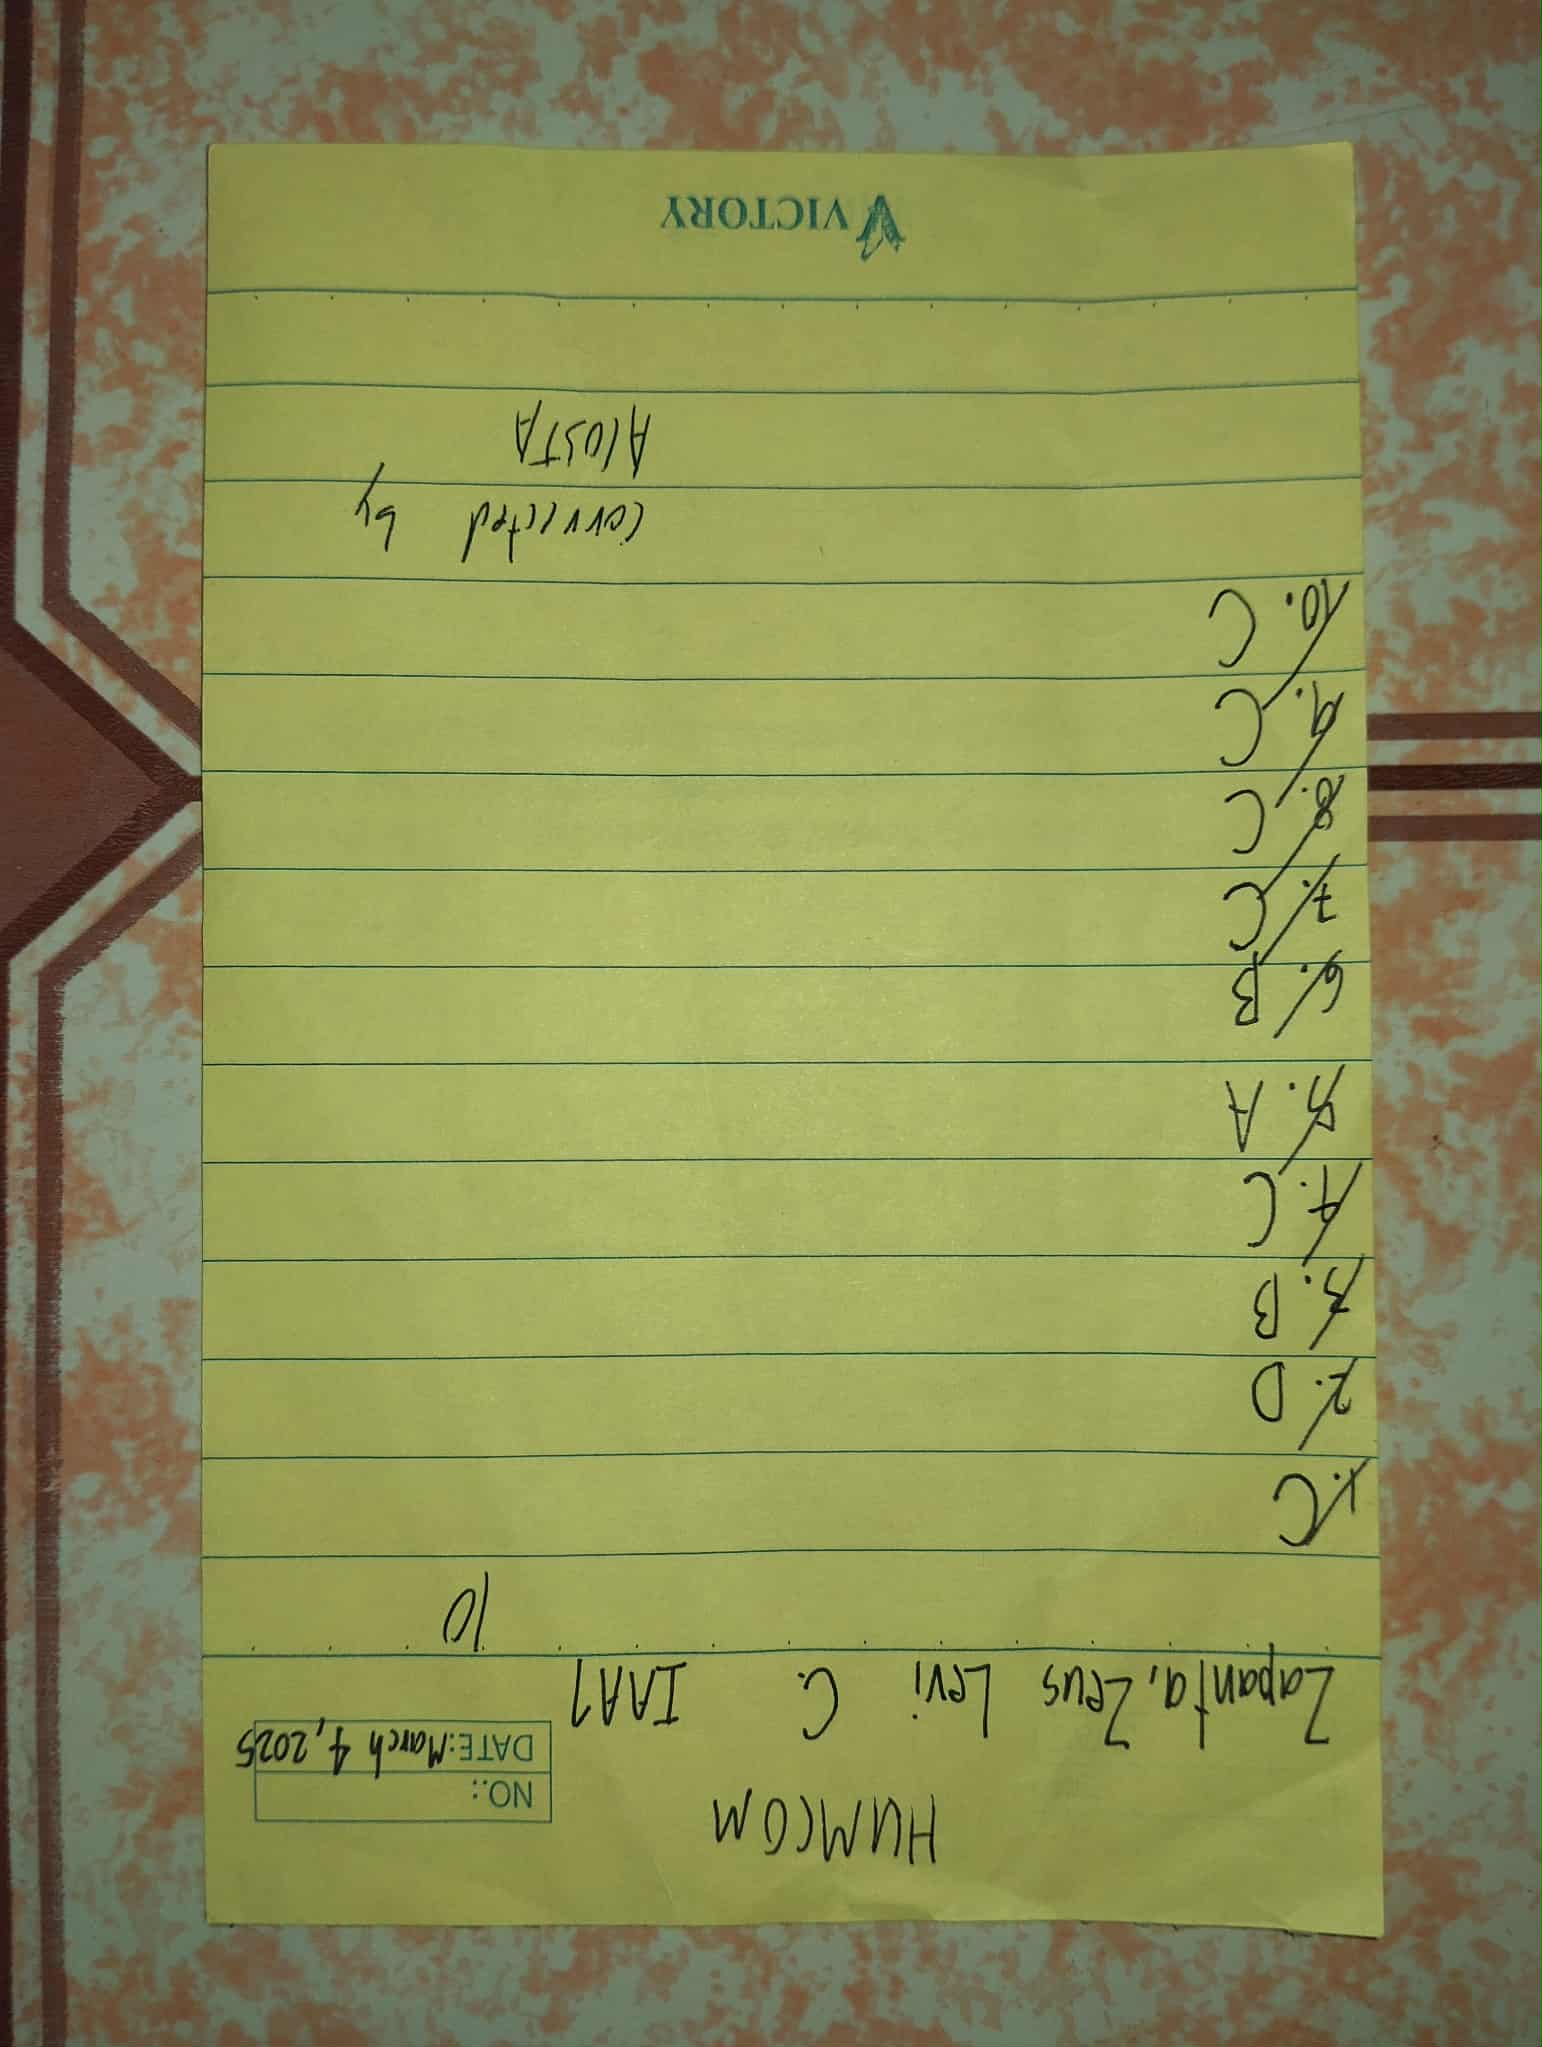 HUMCOM
NO.:
DATE: March 4, 2025
Zapanta, Zeus Levi C. IAA1
10
1. C
2. D
3. B
4. C
5. A
6. B
7. C
8. C
9. C
10. C
corrected by
ACOSTA
VICTORY